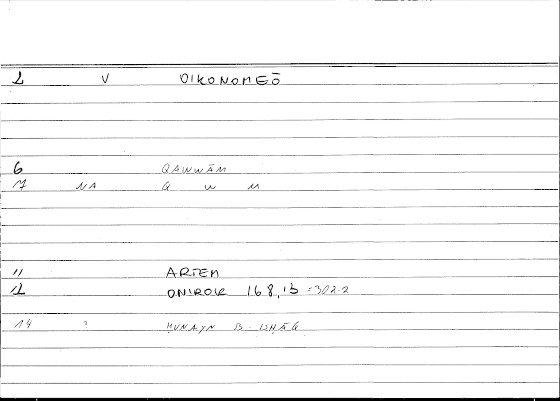 2 V OIKONOMEŌ
6 QAWWĀM
7 NA Q W M
11 ARTEM
12 ONIROK 168,13 =302-2
14 ? ḤUNAYN B-ISḤĀQ